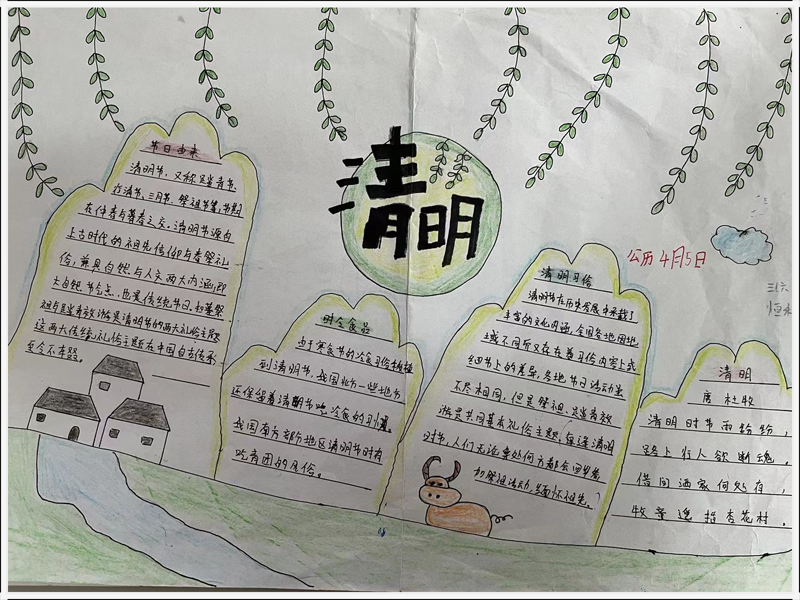 清明
节日由来
清明节，又称踏青节、
行清节、三月节、祭祖节等，节期
在仲春与暮春之交。清明节源自
上古时代的祖先信仰与春祭礼
俗，兼具自然与人文两大内涵，即
大自然节气点，也是传统节日。扫墓祭
祖与踏青郊游是清明节的两大礼俗主题
这两大传统礼俗主题在中国自古传承，
至今不辍。
时令食品
由于寒食节的冷食习俗移植
到清明节，我国北方一些地方
还保留着清明节吃冷食的习惯。
我国南方部分地区清明节时有
吃青团的风俗。
清明习俗
清明节在历史发展中承载了
丰富的文化内涵，全国各地因地
域不同所又存在着习俗内容上或
细节上的差异，各地节日活动虽
不尽相同，但是祭祖、踏青郊
游是共同基本礼俗主题，每逢清明
时节，人们无论
祭祖活动，缅怀祖先。
公历4月5日
清明
唐 杜牧
清明时节雨纷纷，
路上行人欲断魂。
借问酒家何处有，
牧童遥指杏花村。